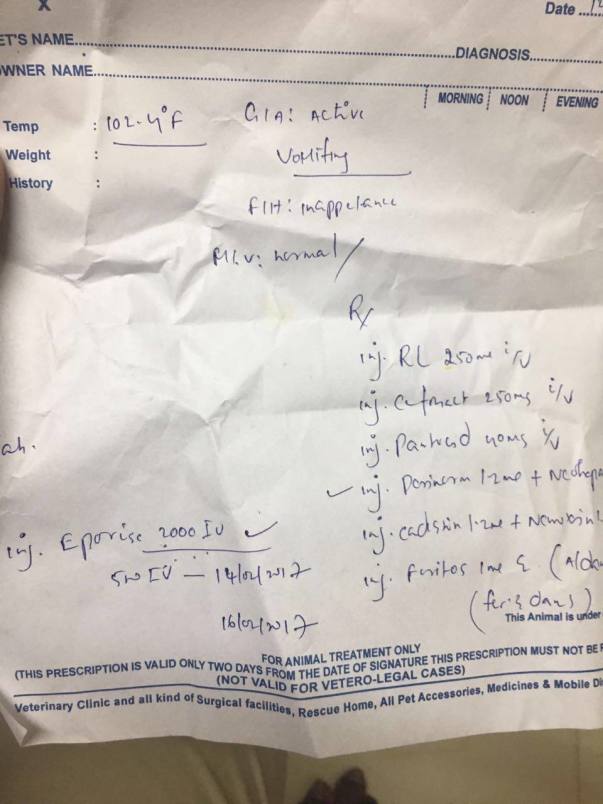 X
Date ...
ET'S NAME
DIAGNOSIS
OWNER NAME
MORNING NOON EVENING
Temp : 102.4°F G/A: Active
Weight : Vomiting
History :
F/H: inappetance
normal/
Rx
inj. RL 250ml i/v
inj. 250mg i/v
inj. 40mg i/v
inj. Perinorm 1.2ml +
inj. 1.2ml +
inj. 1ml
inj. Eporise 2000 IU
500 IU — 14/02/2017
16/02/2017
This Animal is under
FOR ANIMAL TREATMENT ONLY
(THIS PRESCRIPTION IS VALID ONLY TWO DAYS FROM THE DATE OF SIGNATURE THIS PRESCRIPTION MUST NOT BE
(NOT VALID FOR VETERO-LEGAL CASES)
Veterinary Clinic and all kind of Surgical facilities, Rescue Home, All Pet Accessories, Medicines & Mobile Di